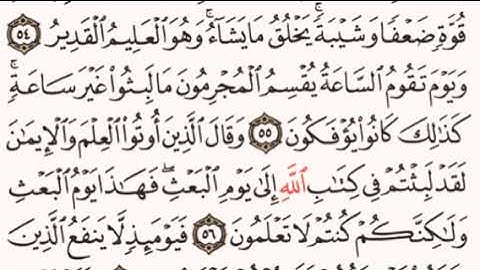 قُوَّةٖ ضَعۡفٗا وَشَيۡبَةٗۚ يَخۡلُقُ مَا يَشَآءُۚ وَهُوَ ٱلۡعَلِيمُ ٱلۡقَدِيرُ ٥٤
وَيَوۡمَ تَقُومُ ٱلسَّاعَةُ يُقۡسِمُ ٱلۡمُجۡرِمُونَ مَا لَبِثُواْ غَيۡرَ سَاعَةٖۚ
كَذَٰلِكَ كَانُواْ يُؤۡفَكُونَ ٥٥ وَقَالَ ٱلَّذِينَ أُوتُواْ ٱلۡعِلۡمَ وَٱلۡإِيمَٰنَ
لَقَدۡ لَبِثۡتُمۡ فِي كِتَٰبِ ٱللَّهِ إِلَىٰ يَوۡمِ ٱلۡبَعۡثِۖ فَهَٰذَا يَوۡمُ ٱلۡبَعۡثِ
وَلَٰكِنَّكُمۡ كُنتُمۡ لَا تَعۡلَمُونَ ٥٦ فَيَوۡمَئِذٖ لَّا يَنفَعُ ٱلَّذِينَ